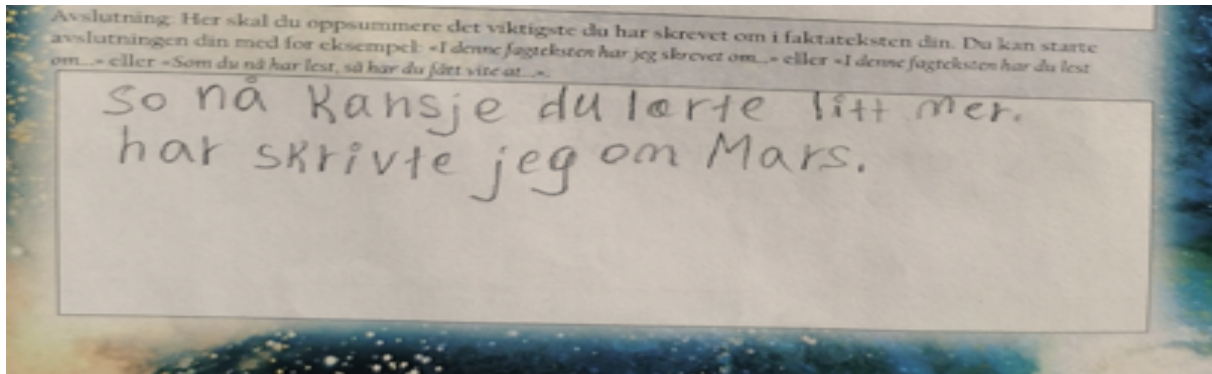 Avslutning: Her skal du oppsummere det viktigste du har skrevet om i faktateksten din. Du kan starte
avslutningen din med for eksempel: «I denne fagteksten har jeg skrevet om...» eller «I denne fagteksten har du lest
om...» eller «Som du nå har lest, så har du fått vite at...».
so nå kansje du lærte litt mer.
har skrivte jeg om Mars.